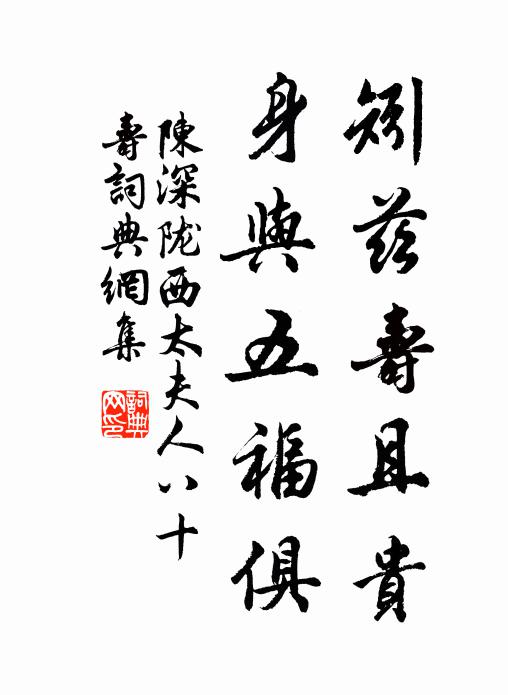 矧茲壽且貴
身與五福俱
陳深陇西太夫人八十
壽詞典網集
詞典
网印